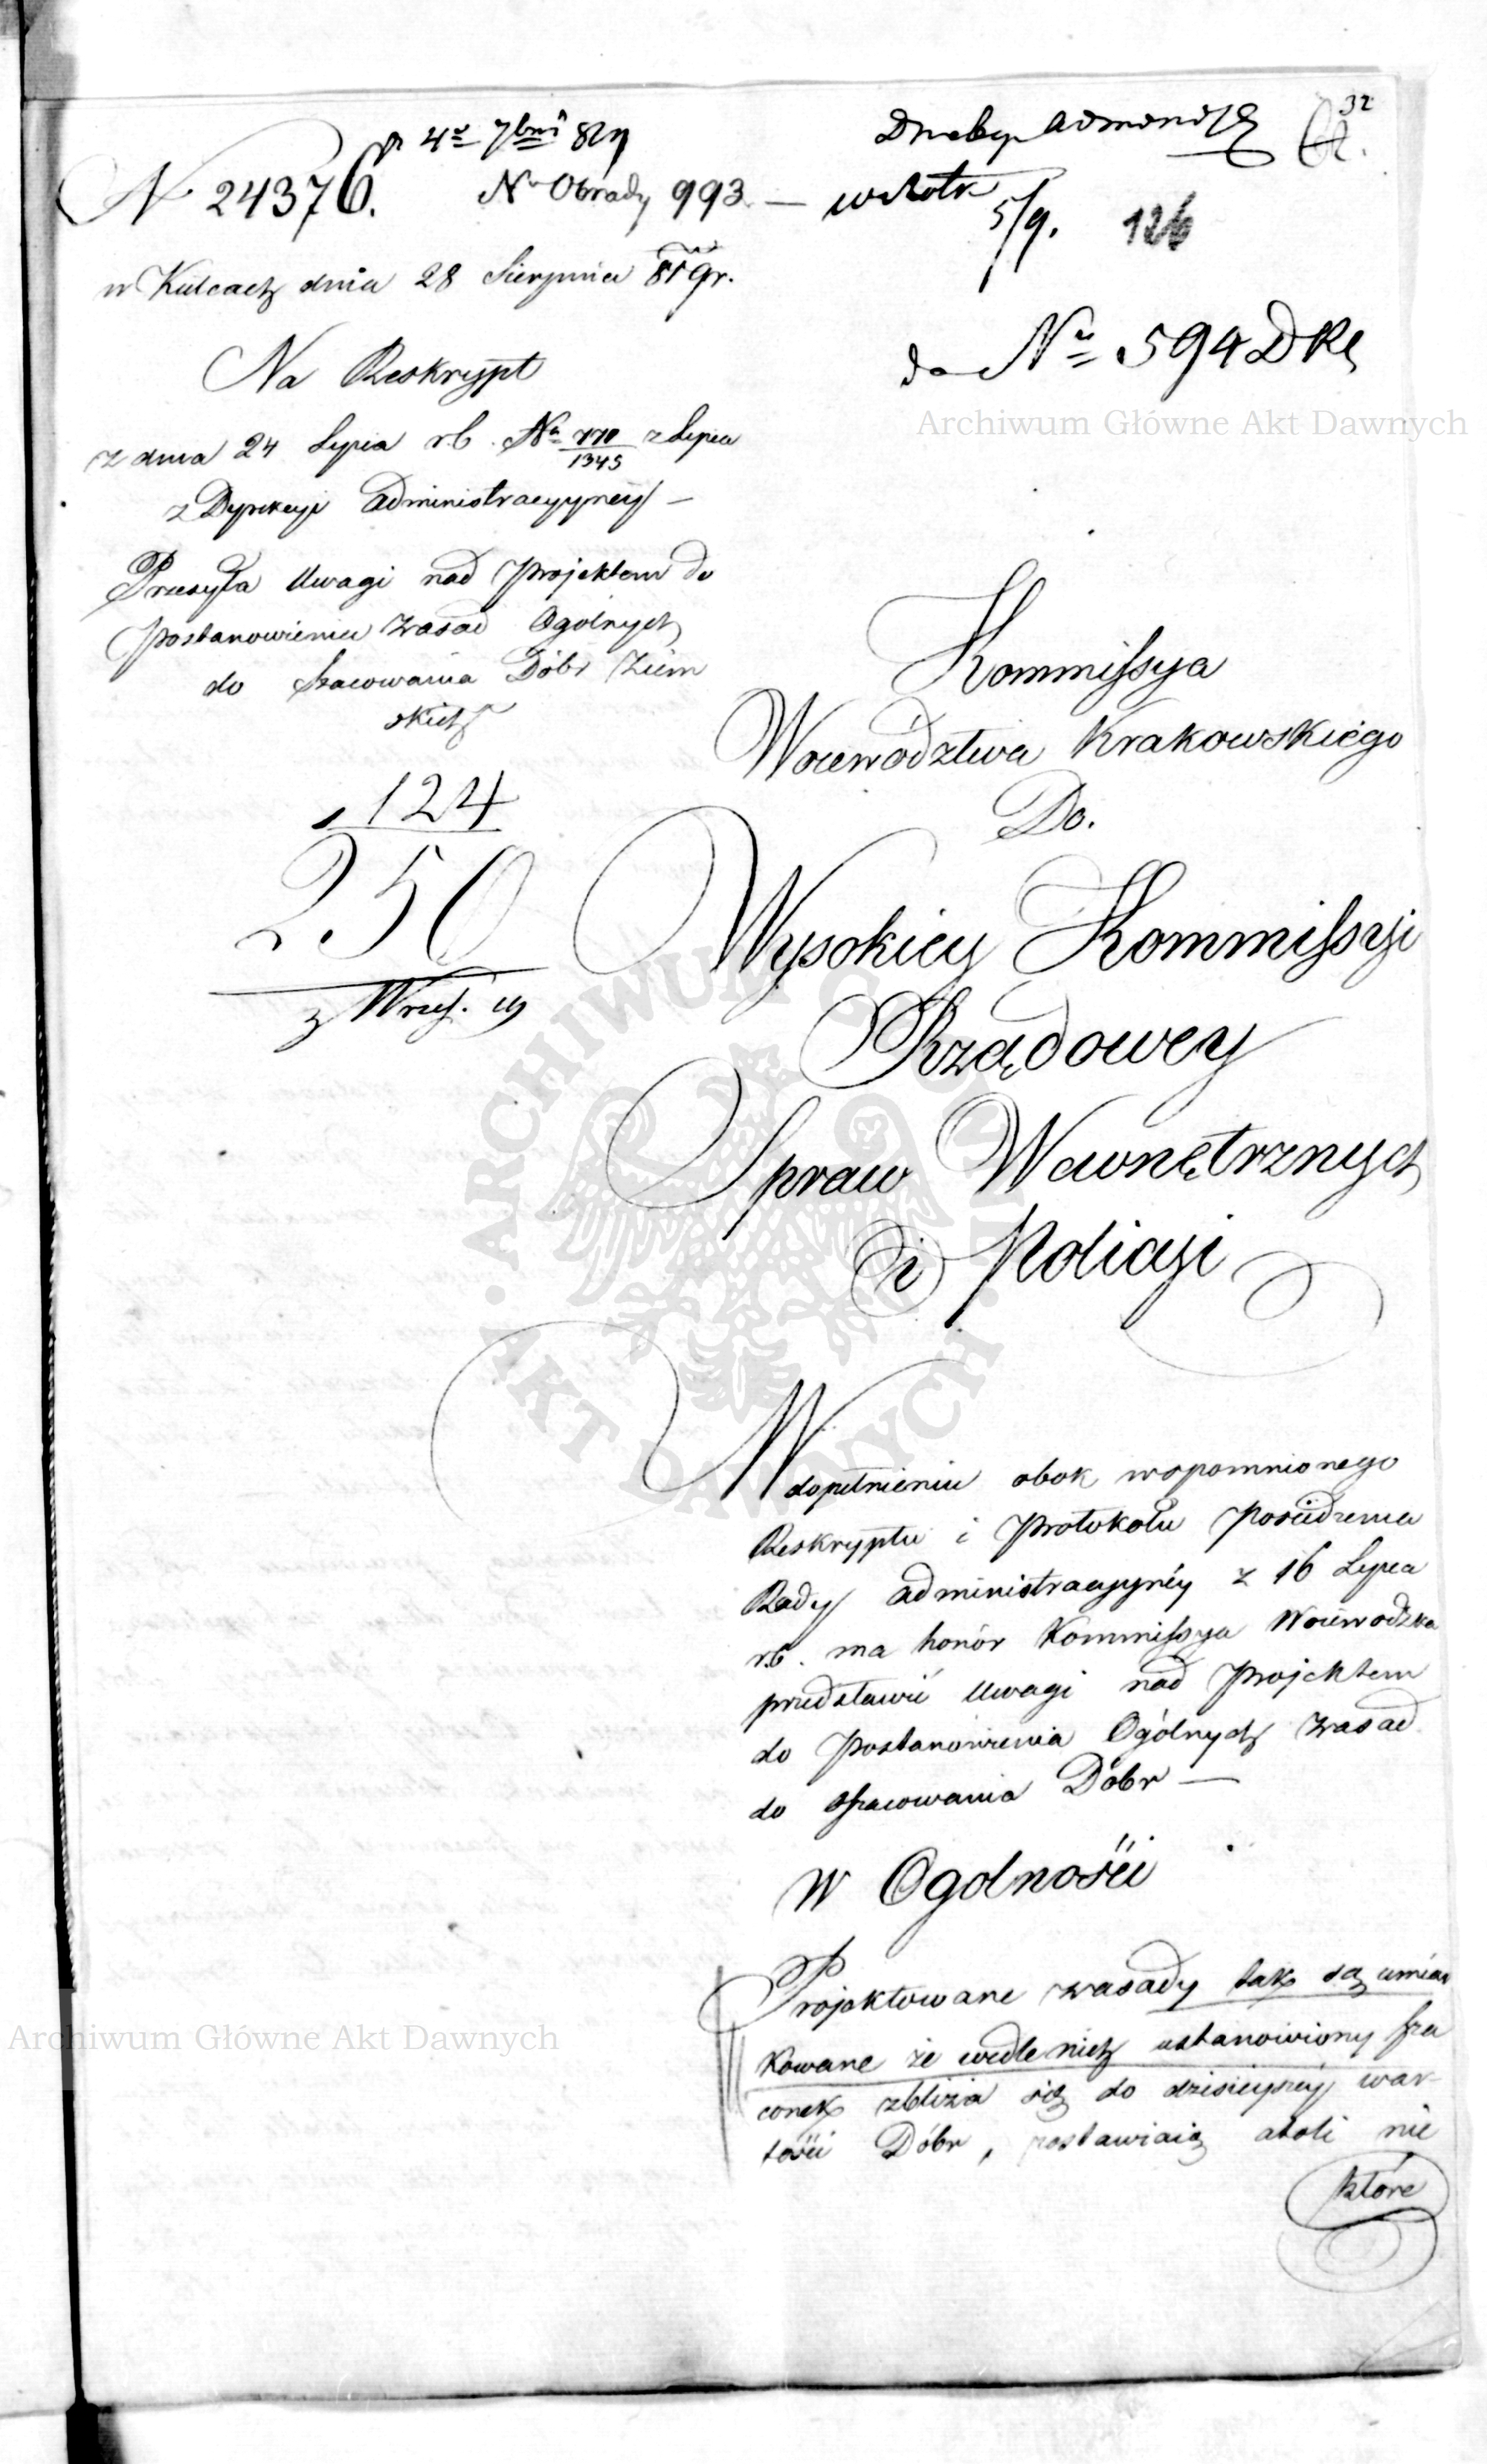 32
4º 7bris 819
N 24376. Nr Obrady 993 —
5/9. 126
w Kielcach dnia 28 Sierpnia 819r.
do Nr 594 DRl
Archiwum Główne Akt Dawnych
Na Reskrypt
z dnia 24 Lipca r.b. Nr 770/1345 z Lipca
z Dyrekcyi Administracyyney —
Przesyła Uwagi nad Projektem do
postanowienia zasad Ogólnych
do szacowania Dóbr Ziem
skich
124
250
z Wrześ. 19
Kommissya
Woiewództwa Krakowskiego
Do.
Wysokiey Kommissyi
Rządowey
Spraw Wewnętrznych
i Policyi
W dopełnieniu obok wspomnionego
Reskryptu i Protokołu Posiedzenia
Rady Administracyyney z 16 Lipca
r.b. ma honor Kommissya Woiewodzka
przedstawić Uwagi nad Projektem
do Postanowienia Ogólnych zasad
do szacowania Dóbr —
W Ogolności
Projektowane zasady tak są umiar
kowane że wedle nich ustanowiony sza
conek zbliża się do dzisieyszey war-
tości Dóbr, zostawiaią atoli nie
które
ARCHIWUM GŁÓWNE AKT DAWNYCH
Archiwum Główne Akt Dawnych